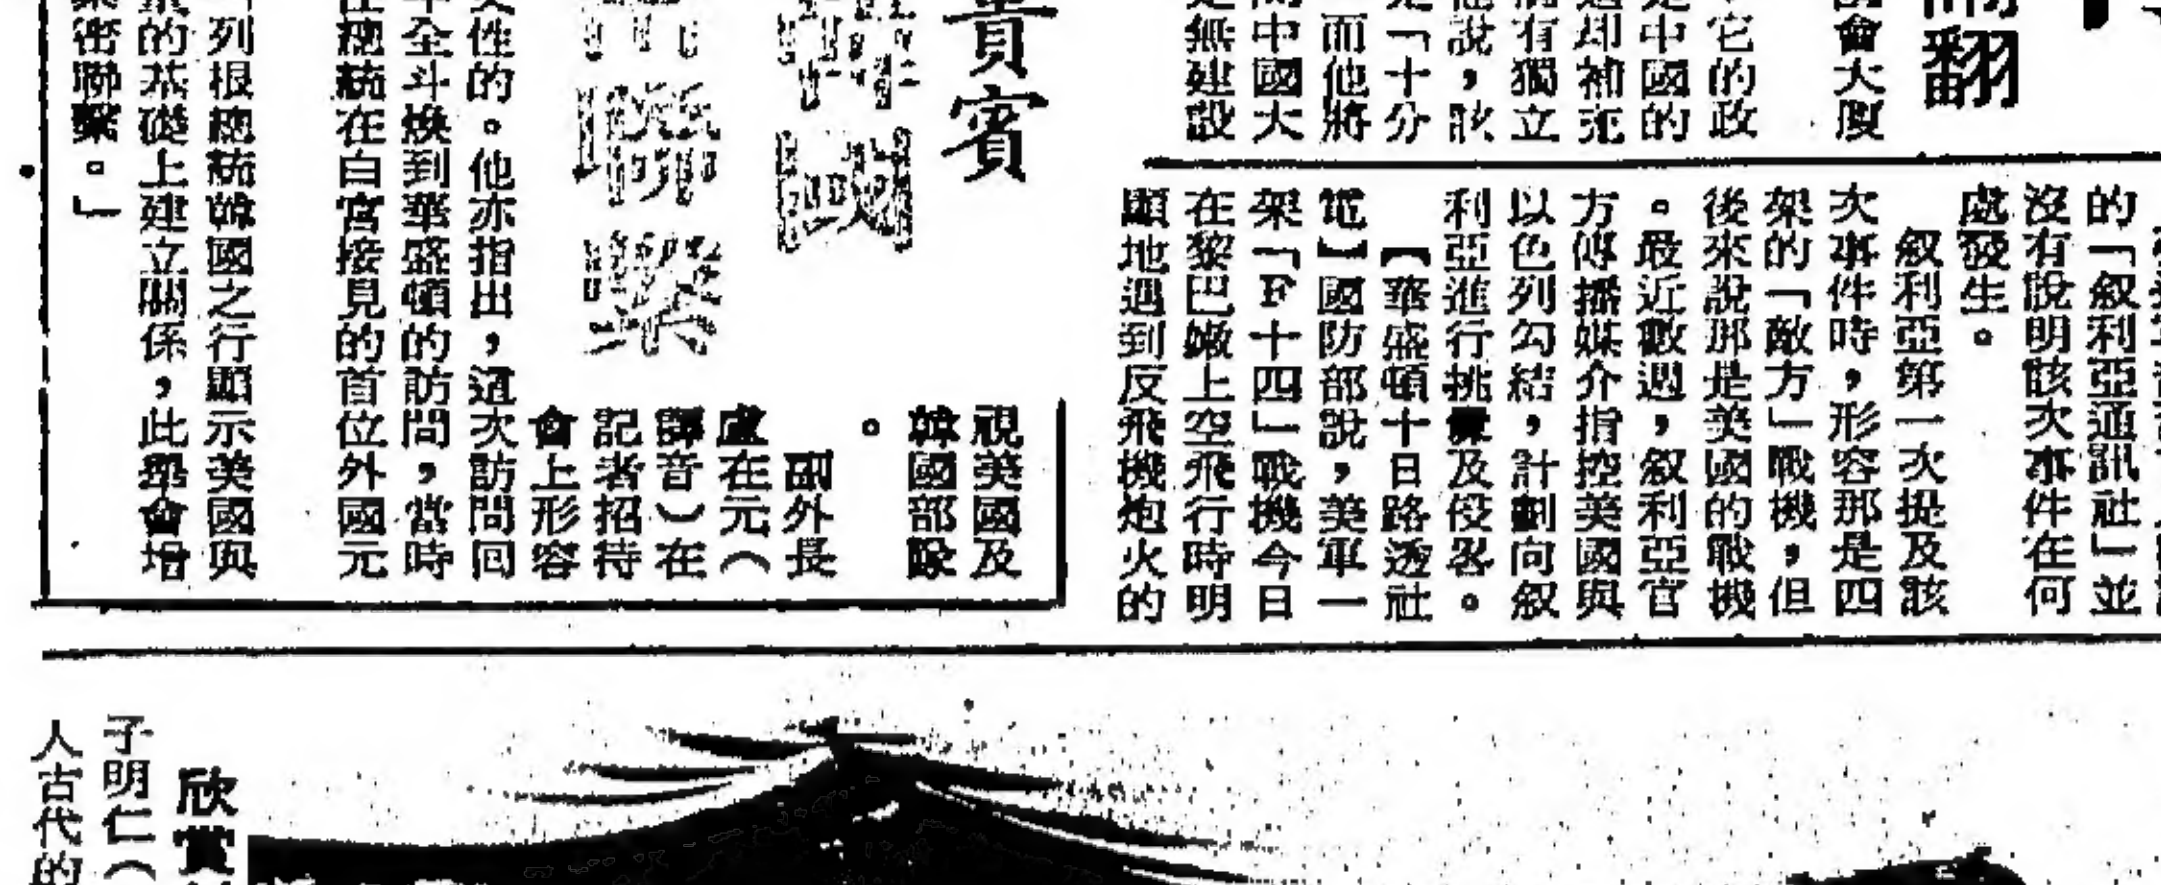 翻
會大廈
它的政
是中國的
這却補充
有獨立
他說，該
是「十分
而他將
中國大
是無建設
的「叙利亞通訊社」並
沒有說明該次事件在何
處發生。
叙利亞第一次提及該
次事件時，形容那是四
架的「敵方」戰機，但
後來說那是美國的戰機
。最近數週，叙利亞官
方傳播媒介指控美國與
以色列勾結，計劃向叙
利亞進行挑釁及侵畧。
【華盛頓十日路透社
電】國防部說，美軍一
架「F十四」戰機今日
在黎巴嫩上空飛行時明
顯地遇到反飛機炮火的
貴賓
國
聯繫
視美國及
韓國部隊
。
副外長
盧在元（
譯音）在
記者招待
會上形容
史性的。他亦指出，這次訪問回
全斗煥到華盛頓的訪問，當時
總統在白宮接見的首位外國元
列根總統韓國之行顯示美國與
的基礎上建立關係，此舉會增
密聯繫。」
欣賞
子明仁（
人古代的